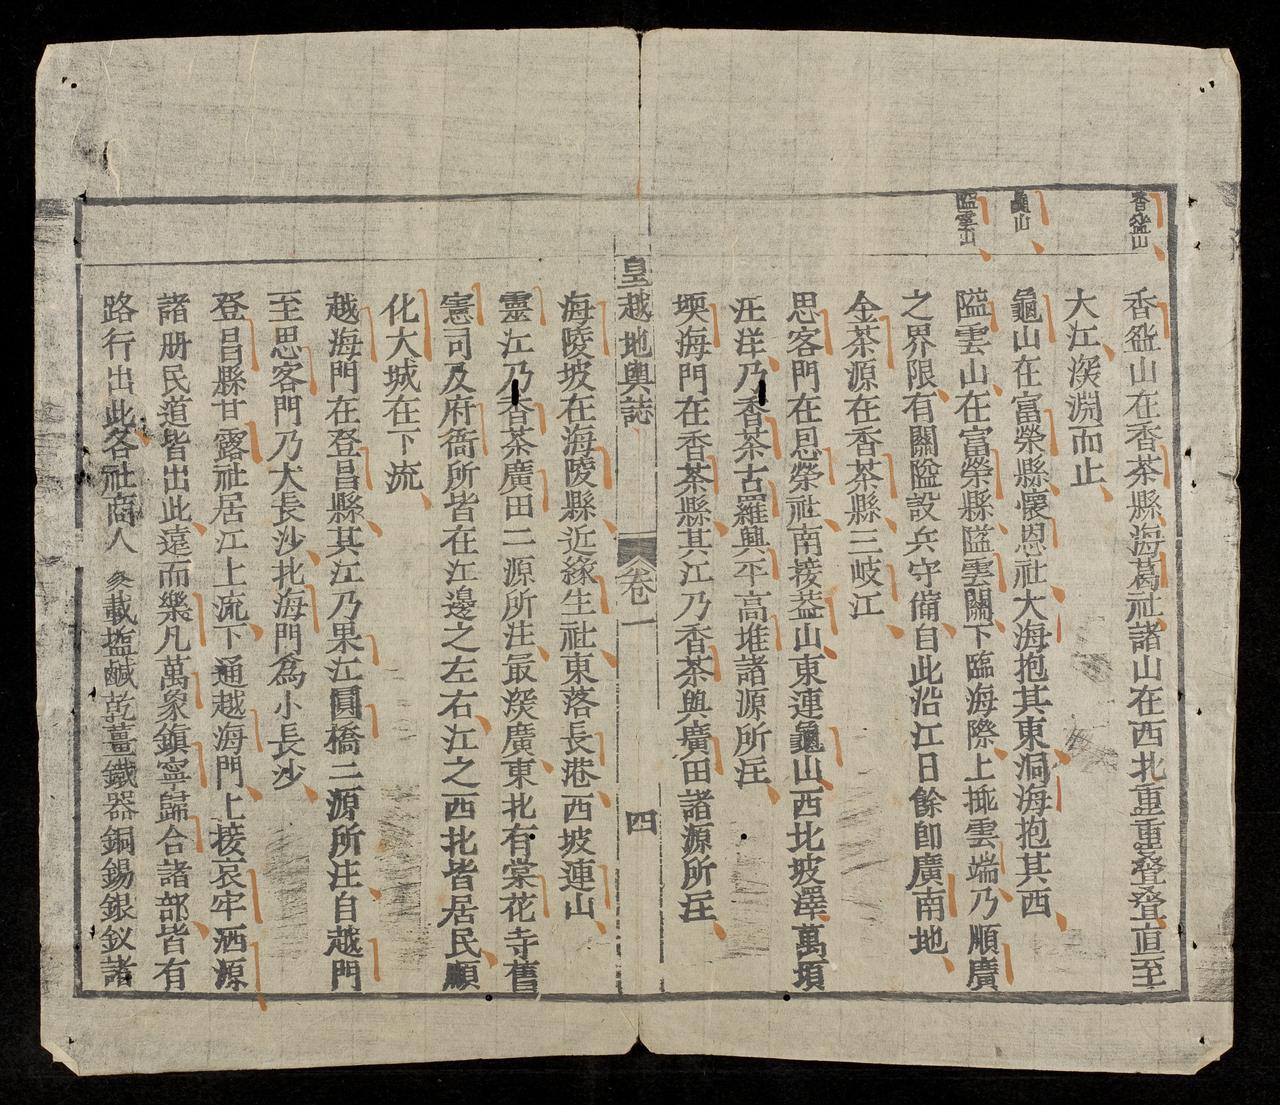 香盆山
龜山
隘雲山
香盆山在香茶縣海葛社諸山在西北重重叠叠直至
大江深淵而止
龜山在富榮縣懷恩社大海抱其東洞海抱其西
隘雲山在富榮縣隘雲關下臨海際上掀雲端乃順廣
之界限有關隘設兵守備自此沿江日餘卽廣南地
金茶源在香茶縣三岐江
思客門在思榮社南接葢山東連龜山西北坡澤萬頃
汪洋乃香茶古羅興平高堆諸源所注
堧海門在香茶縣其江乃香茶與廣田諸源所注
皇越地輿誌
卷一
四
海陵坡在海陵縣近緣生社東落長港西坡連山
靈江乃香茶廣田二源所注最深廣東北有棠花寺舊
憲司及府衙所皆在江邊之左右江之西北皆居民順
化大城在下流
越海門在登昌縣其江乃果江圓橋二源所注自越門
至思客門乃大長沙北海門爲小長沙
登昌縣甘露社居江上流下通越海門上接哀牢洒源
諸册民道皆出此遠而樂凡萬象鎮寧歸合諸部皆有
路行出此各社商人 載塩鹹乾薑鐵器銅錫銀釵諸